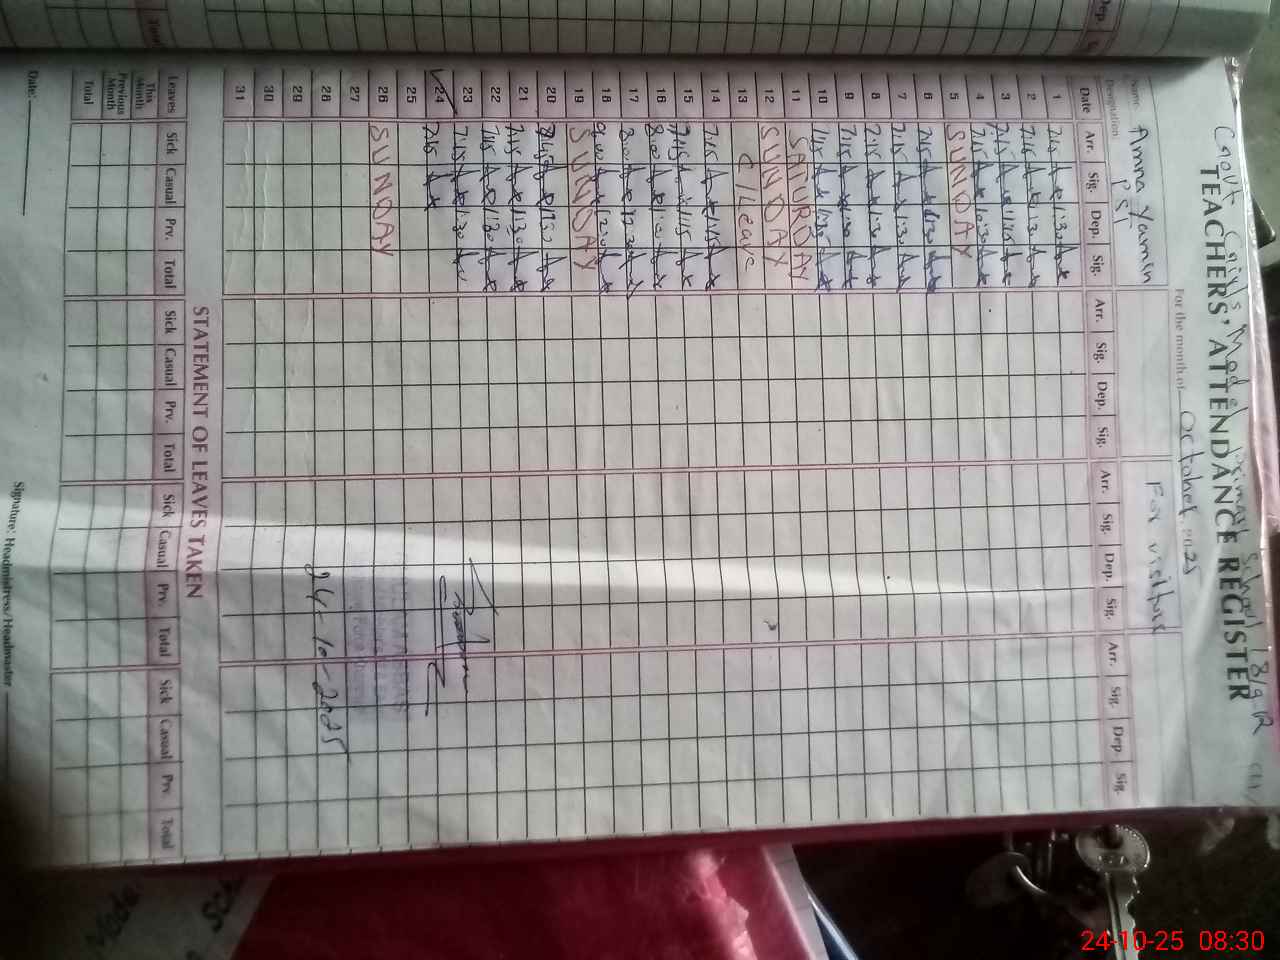 Govt Girls Model Primary School 18/9.R
TEACHERS' ATTENDANCE REGISTER
For the month of October 2025
Name: Amna Yamin
Designation PST
For visitors
Date Arr. Sig. Dep. Sig. Arr. Sig. Dep. Sig. Arr. Sig. Dep. Sig. Arr. Sig. Dep. Sig.
1 7:15 1:30
2 7:15 1:30
3 7:15 11:45
4 7:15 10:30
5 SUNDAY
6 7:15 1:30
7 7:15 1:30
8 7:15 1:30
9 7:15 1:30
10 7:15
11 SATURDAY
12 SUNDAY
13 C/Leave
14 7:15 1:15
15 7:45 1:15
16 8:00
17 8:00 12:30
18 9:00 12:00
19 SUNDAY
20 8:45 1:30
21 7:15 1:30
22 7:15 1:30
23 7:15 1:30
24 7:15
25
26 SUNDAY
27
28 24-10-2025
29
30
31
STATEMENT OF LEAVES TAKEN
Leaves Sick Casual Prv. Total Sick Casual Prv. Total Sick Casual Prv. Total Sick Casual Prv. Total
This Month
Previous Month
Total
Date:
Signature: Headmistress/Headmaster
24-10-25 08:30